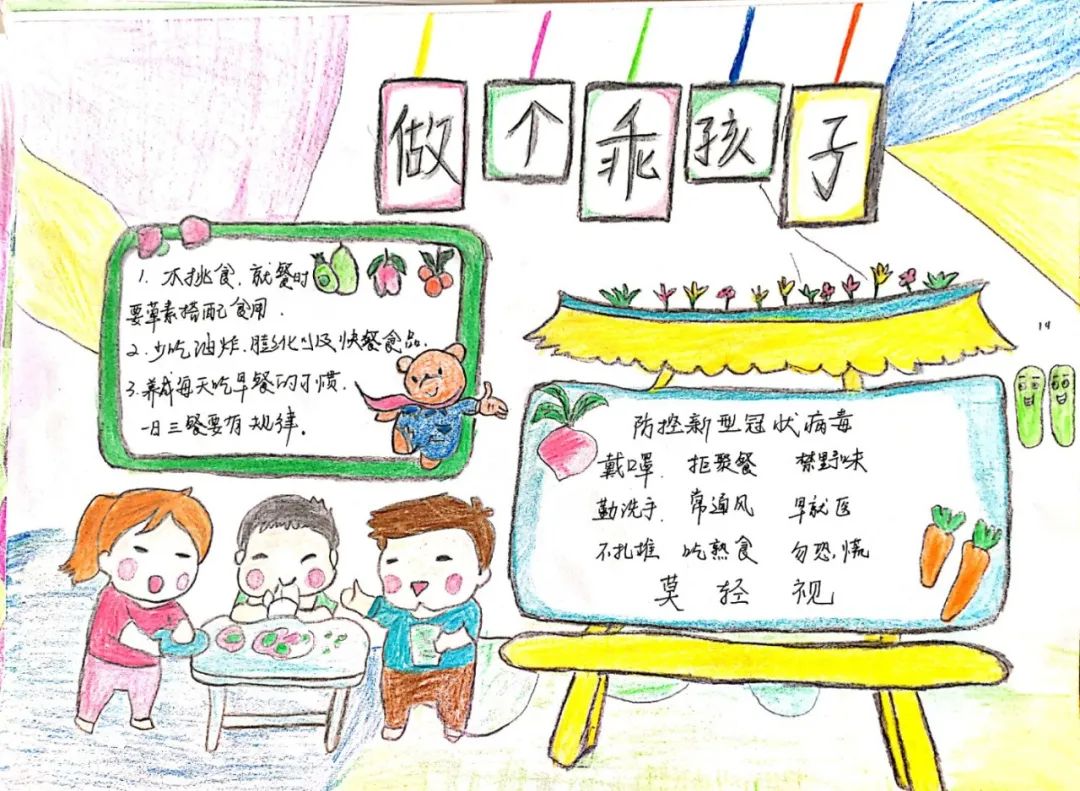 做个乖孩子
1. 不挑食,就餐时
要荤素搭配食用.
2.少吃油炸,膨化以及快餐食品.
3.养成每天吃早餐的习惯.
一日三餐要有规律。
防控新型冠状病毒
戴口罩. 拒聚餐 禁野味
勤洗手. 常通风 早就医
不扎堆 吃熟食 勿恐慌
莫轻视